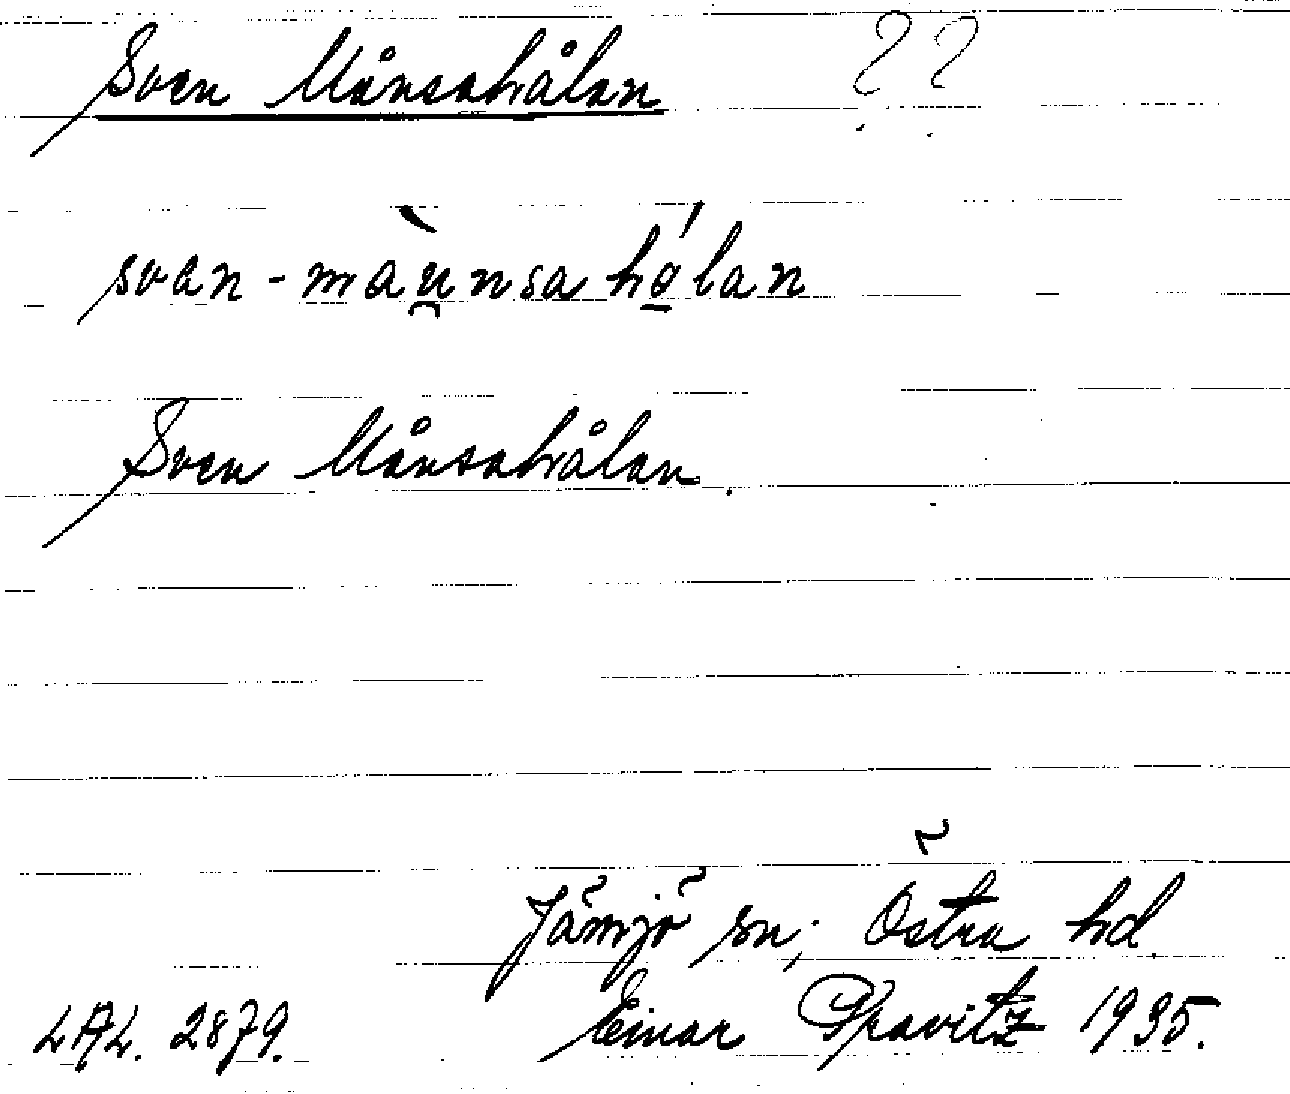 Sven Månsahålan ??
svan-màu̯nsahó̠lan
Sven Månsahålan.
Jämjö sn; Östra hd.
LAL. 2879. Einar Pravitz 1935.